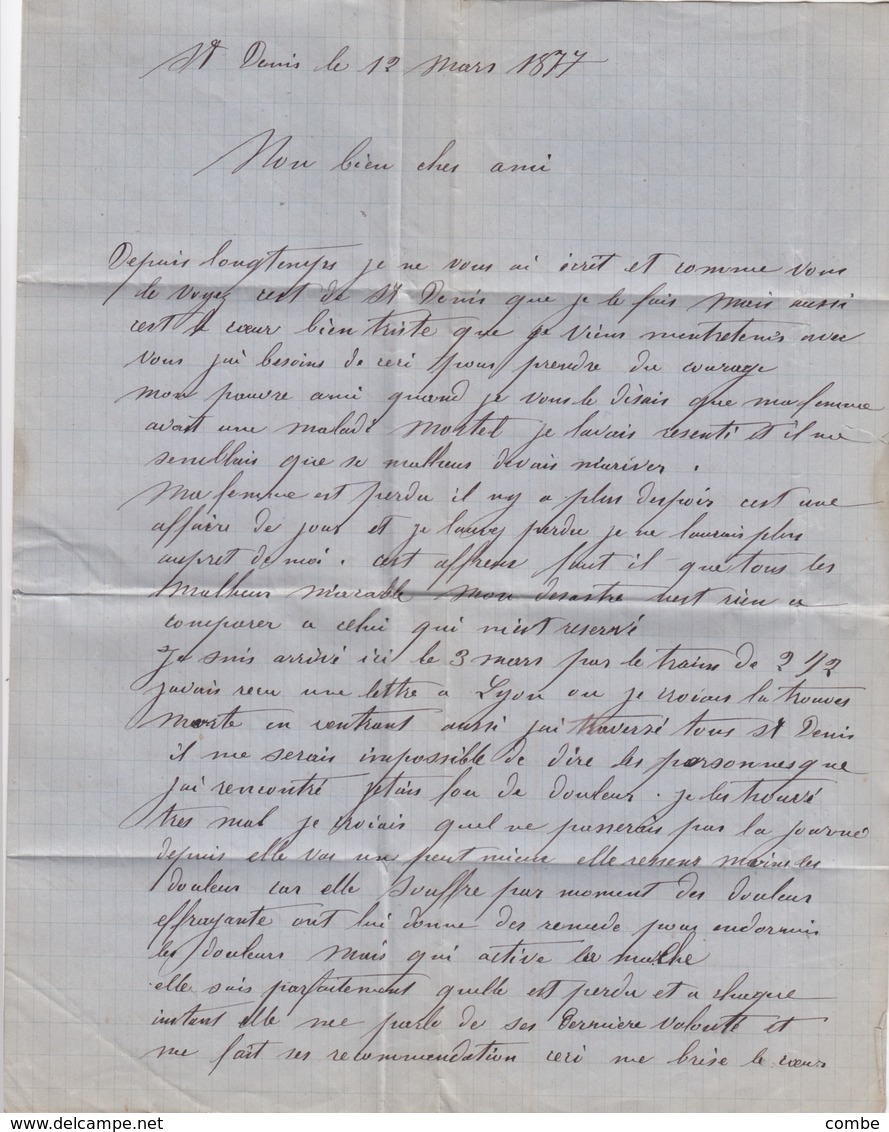 St Denis le 12 Mars 1877
Mon bien cher ami
Depuis longtemps je ne vous ai écrit et comme vous
le voyez cest de St Denis que je le fais Mais aussi
cest le cœur bien triste que je viens mentretenir avec
vous jai besoins de ceci pour prendre du courage
mon pauvre ami quand je vous le disais que ma femme
avait une maladi Mortel je lavais resenti et il me
semblais que se malheur devais mariver .
Ma femme est perdu il ny a plus despoir cest une
affaire de jour et je laurez perdu je ne laurais plus
aupret de moi . cest affreux faut il que tous les
Malheur m'acable Mon desastre nest rien a
comparer a celui qui m'est reservé
Je suis arrivé ici le 3 mars par le trains de 2 1/2
javais recu une lettre a Lyon ou je croiais la trouver
Morte en rentrant aussi jai traversé tous St Denis
il me serais impossible de dire les personnes que
jai rencontré jetais fou de douleur . je les trouvé
tres mal je croiais quel ne passerais pas la journé
depuis elle vas un peut mieux elle ressens moins les
douleur car elle souffre par moment des douleur
effrayante ont lui donne des remede pour endormir
les douleurs Mais qui active la
elle sais parfaitement quelle est perdu et a chaque
instant elle me parle de ses Derniere volonté et
me fait ses recommendation ceci me brise le cœur
combe